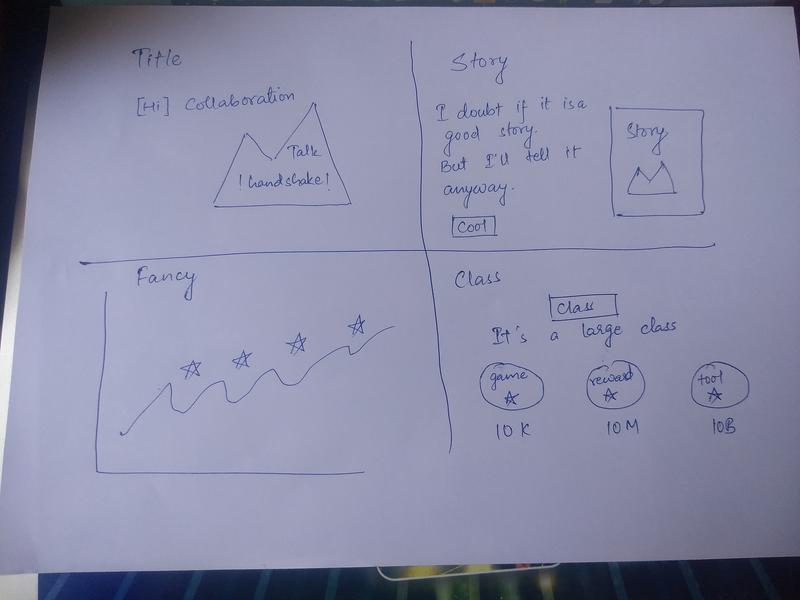 Title
[Hi] Collaboration
Talk
! handshake!
Story
I doubt if it is a
good story.
But I'll tell it
anyway.
Cool
Story
Fancy
Class
Class
It's a large class
game
reward
tool
10 K
10 M
10B